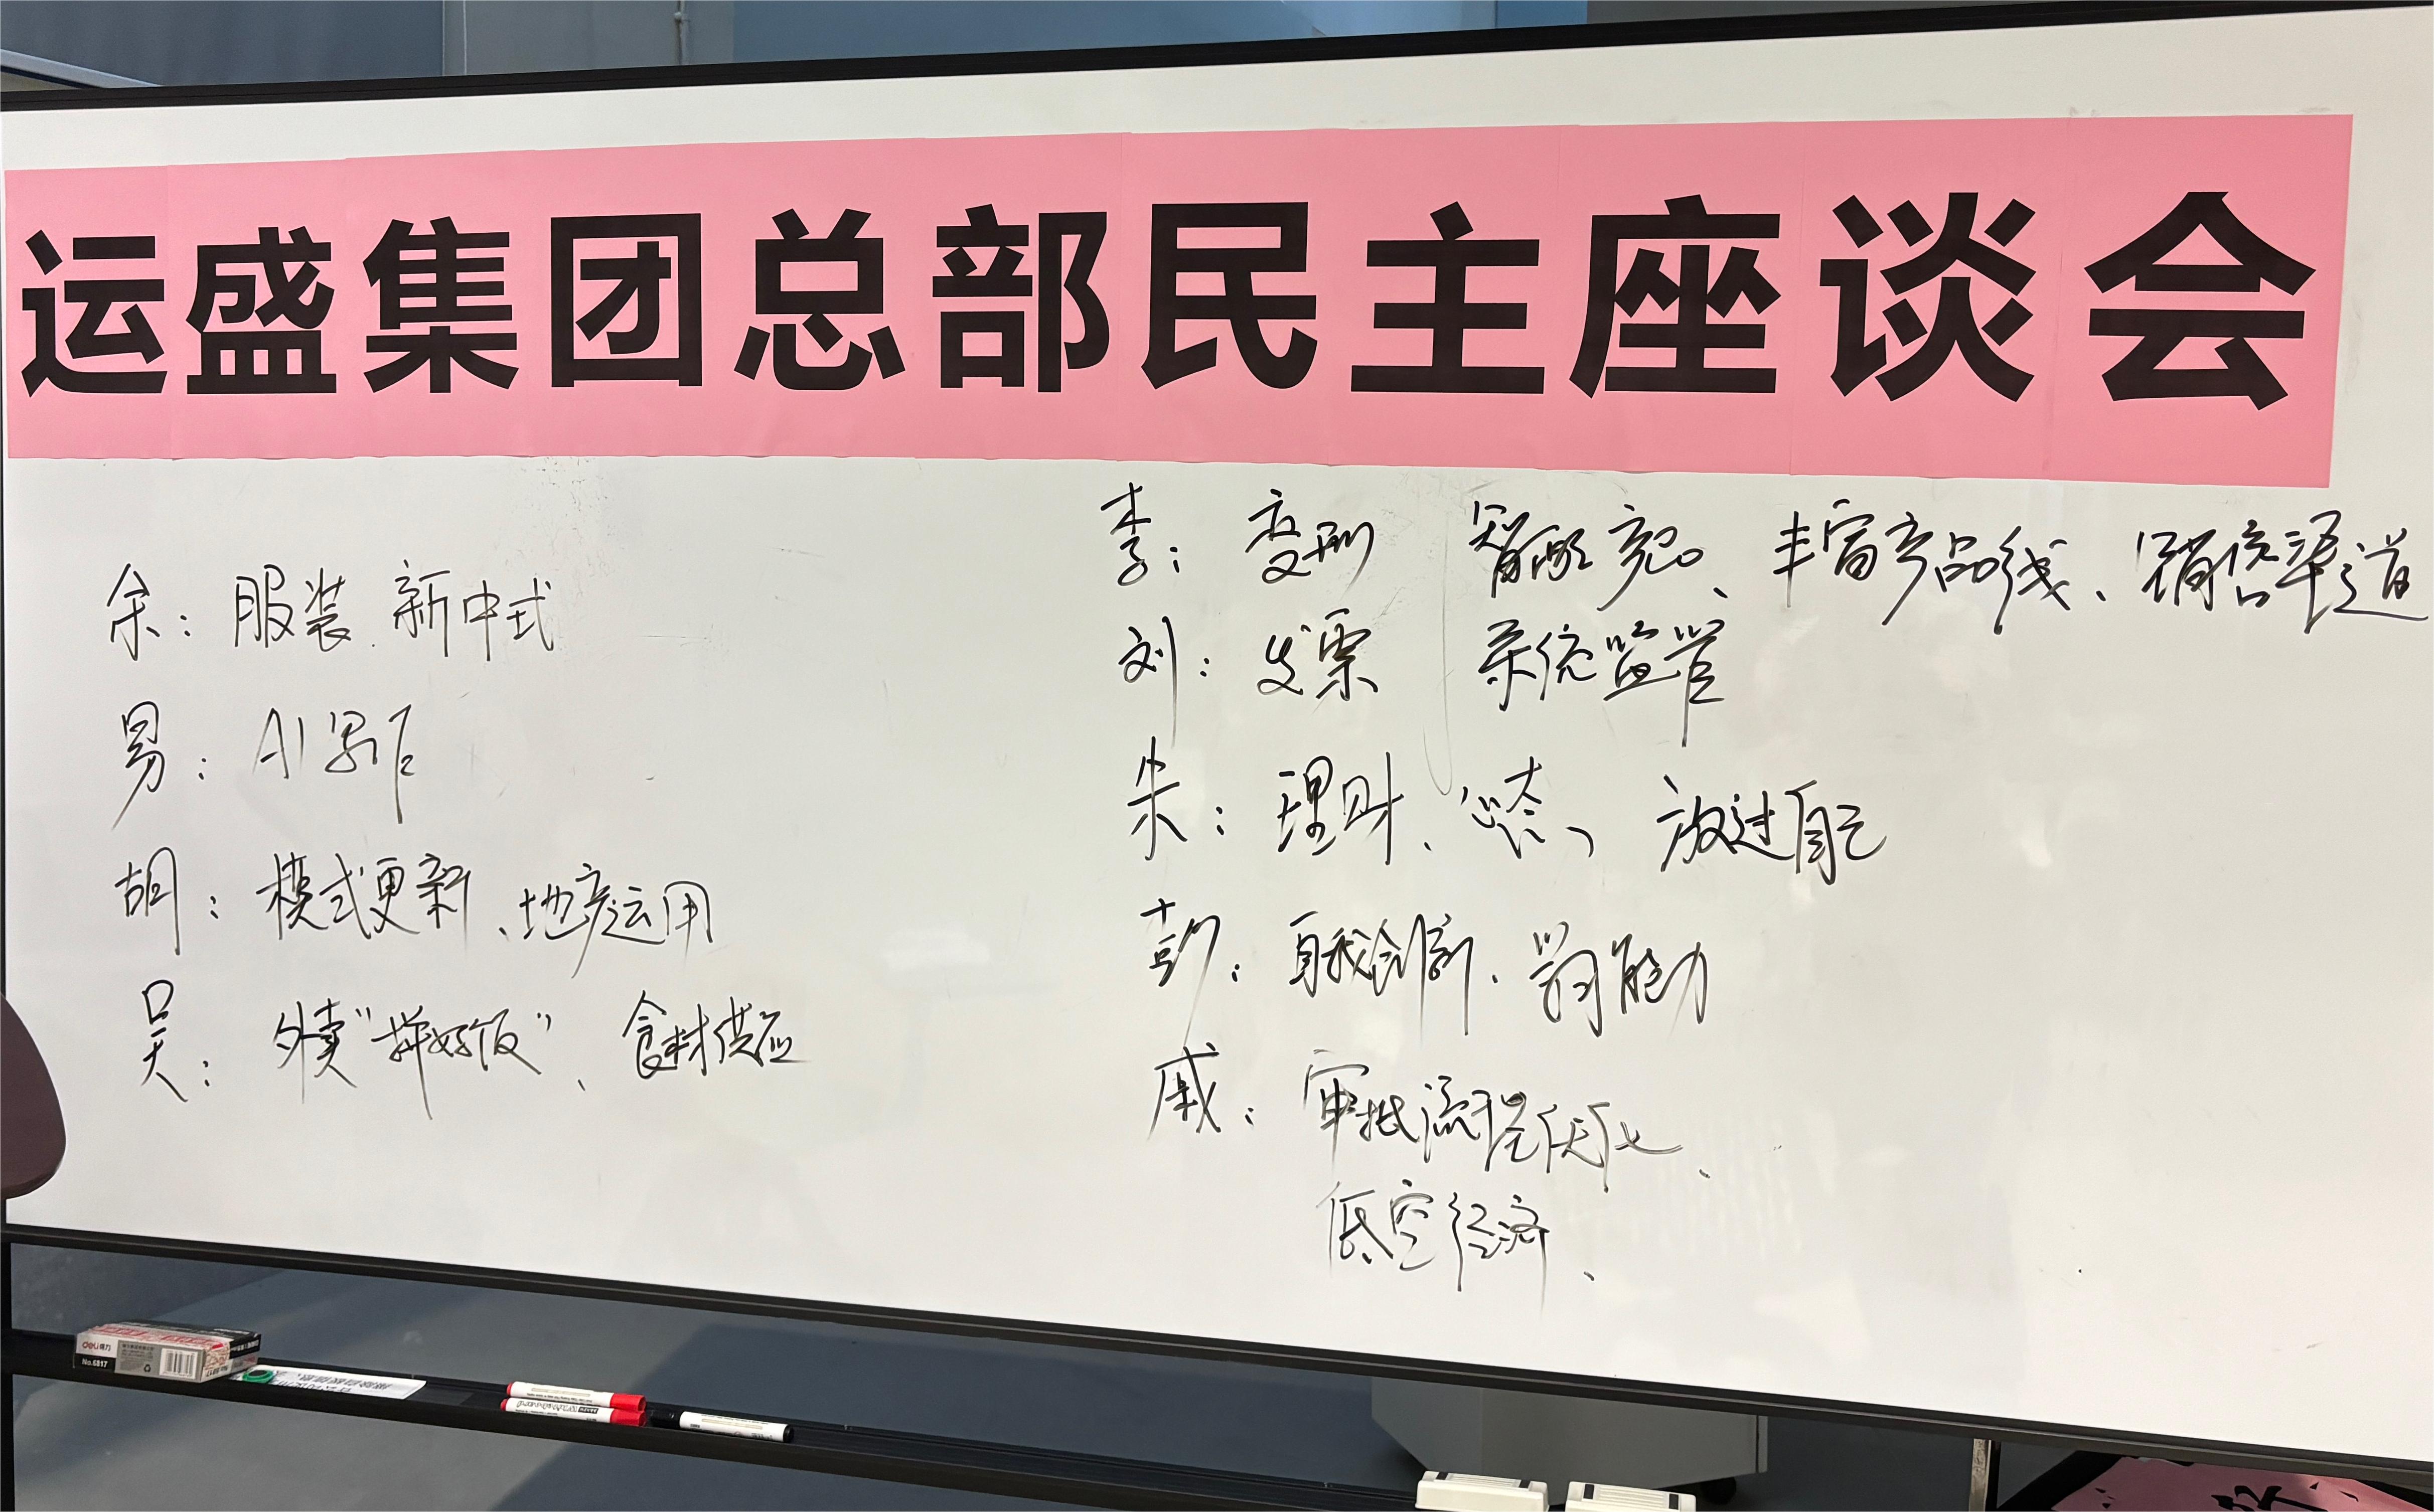 运盛集团总部民主座谈会
余：服装、新中式
易：AI写作
胡：模式更新、地产运用
吴：外卖“拼好饭”、食材供应
李：变形 智能 、丰富产品线、销售渠道
刘：发票 系统监管
朱：理财、 、放过自己
彭：自我创新、 能力
戚：审批流程优化、
低空经济、
deli得力
No.6817